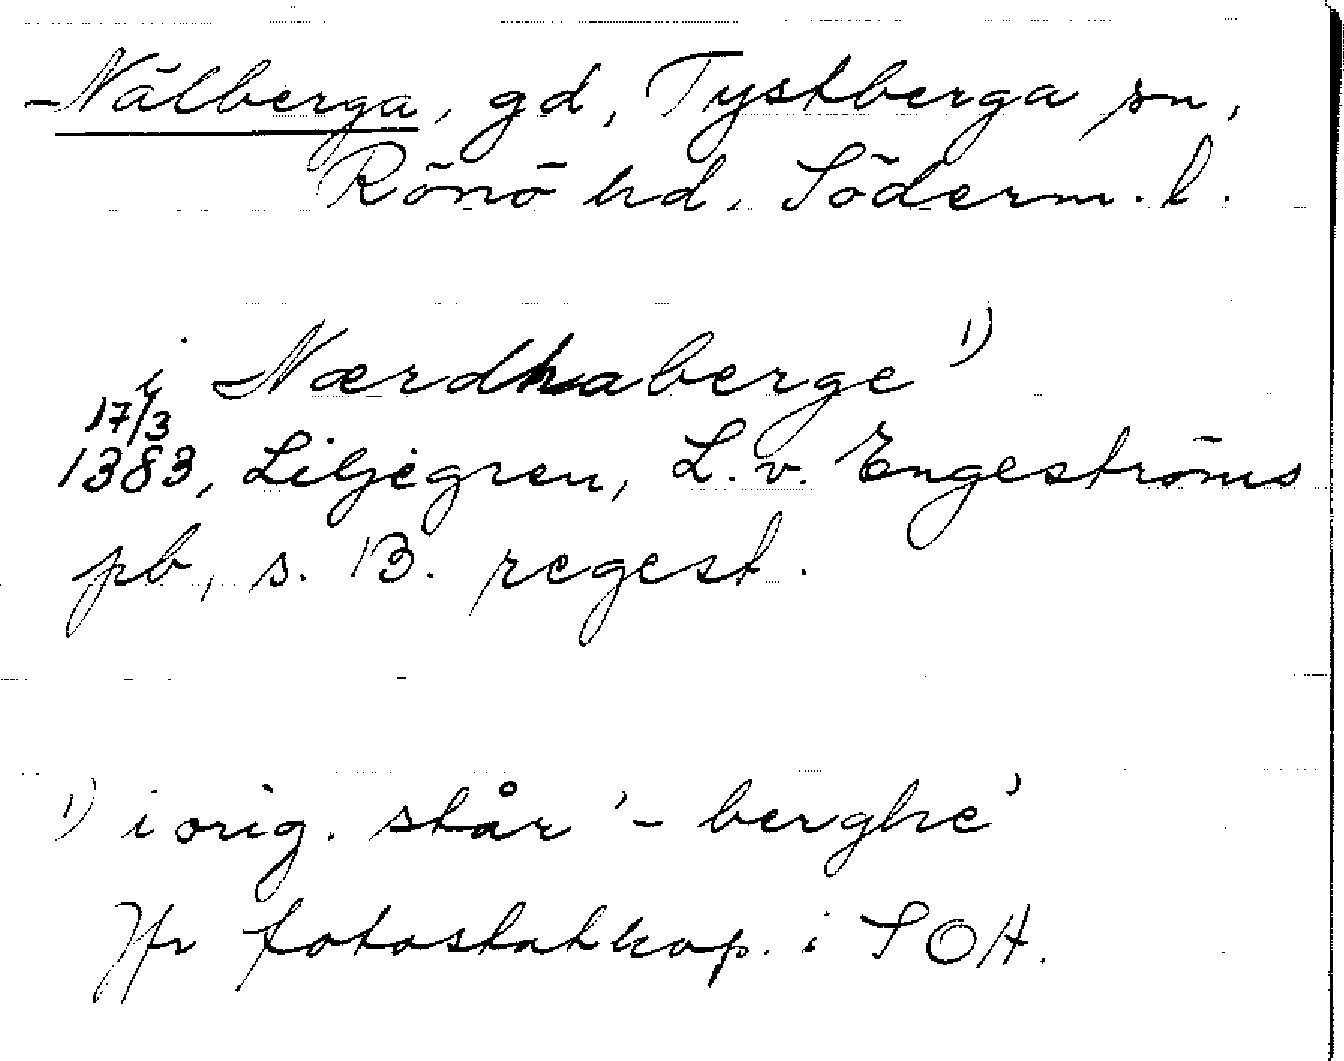 Nälberga, gd, Tystberga sn,
Rönö hd. Söderm. l.
i Nærdhaberge 1)
17/3
1383, Liljegren, L. v. Engeströms
pb, s. 13. regest.
1) i orig. står '-berghe'
Jfr fotostatkop. i SOA.